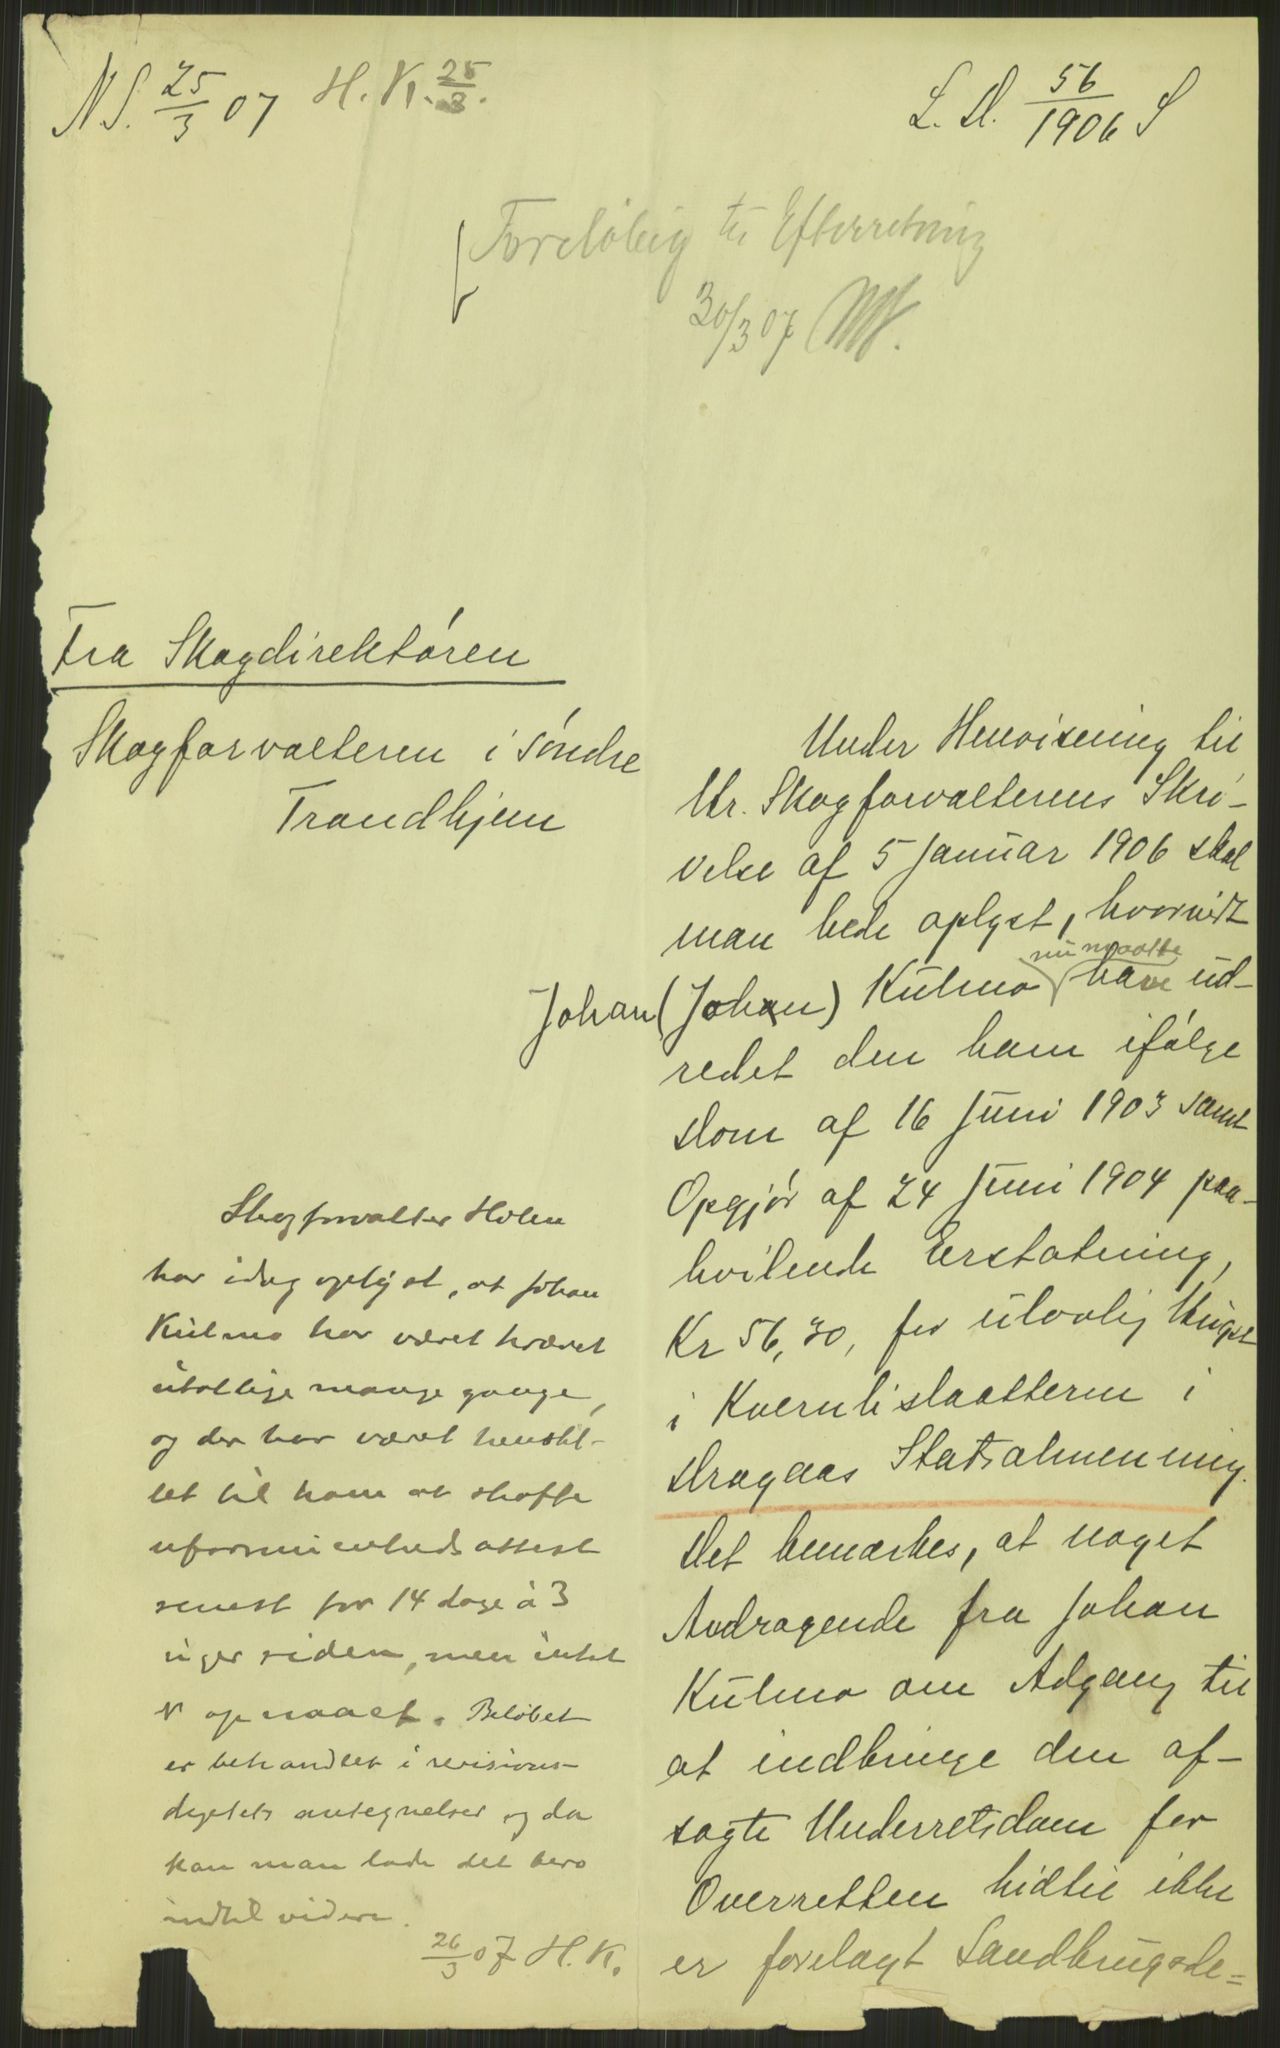 N S. 25/3 07 H. K. 25/3.
L. D. 56/1906 S
Foreløbig til Efterretning
30/3 07
Fra Skogdirektøren
Skogforvalteren i Søndre
Trondhjem
Under Henvisning til
Hr. Skogforvalterens Skri-
velse af 5 Januar 1906 skal
man bede oplyst, hvorvidt
nu maatte
Johan (Johan) Kulmo have ud-
redet den ham ifølge
Dom af 16 Juni 1903 samt
Opgjør af 24 Juni 1904 paa-
hvilende Erstatning,
Kr 56,30, for ulovlig Hugst
i Kvernlislaatteren i
Dragaas Statsalmenning.
Det bemærkes, at noget
Andragende fra Johan
Kulmo om Adgang til
at indbringe den af-
sagte Underretsdom for
Overretten hidtil ikke
er forelagt Landbrugsde=
Skogforvalter Holm
har idag oplyst, at Johan
Kulmo har været krævet
utallige mange gange,
og der har været henstil-
let til ham at skaffe
uformuenhedsattest
senest for 14 dage à 3
uger siden, men intet
er opnaaet. Beløbet
er behandlet i revisions-
antegnelser og da
kan man lade det bero
indtil videre.
26/3 07 H. K.